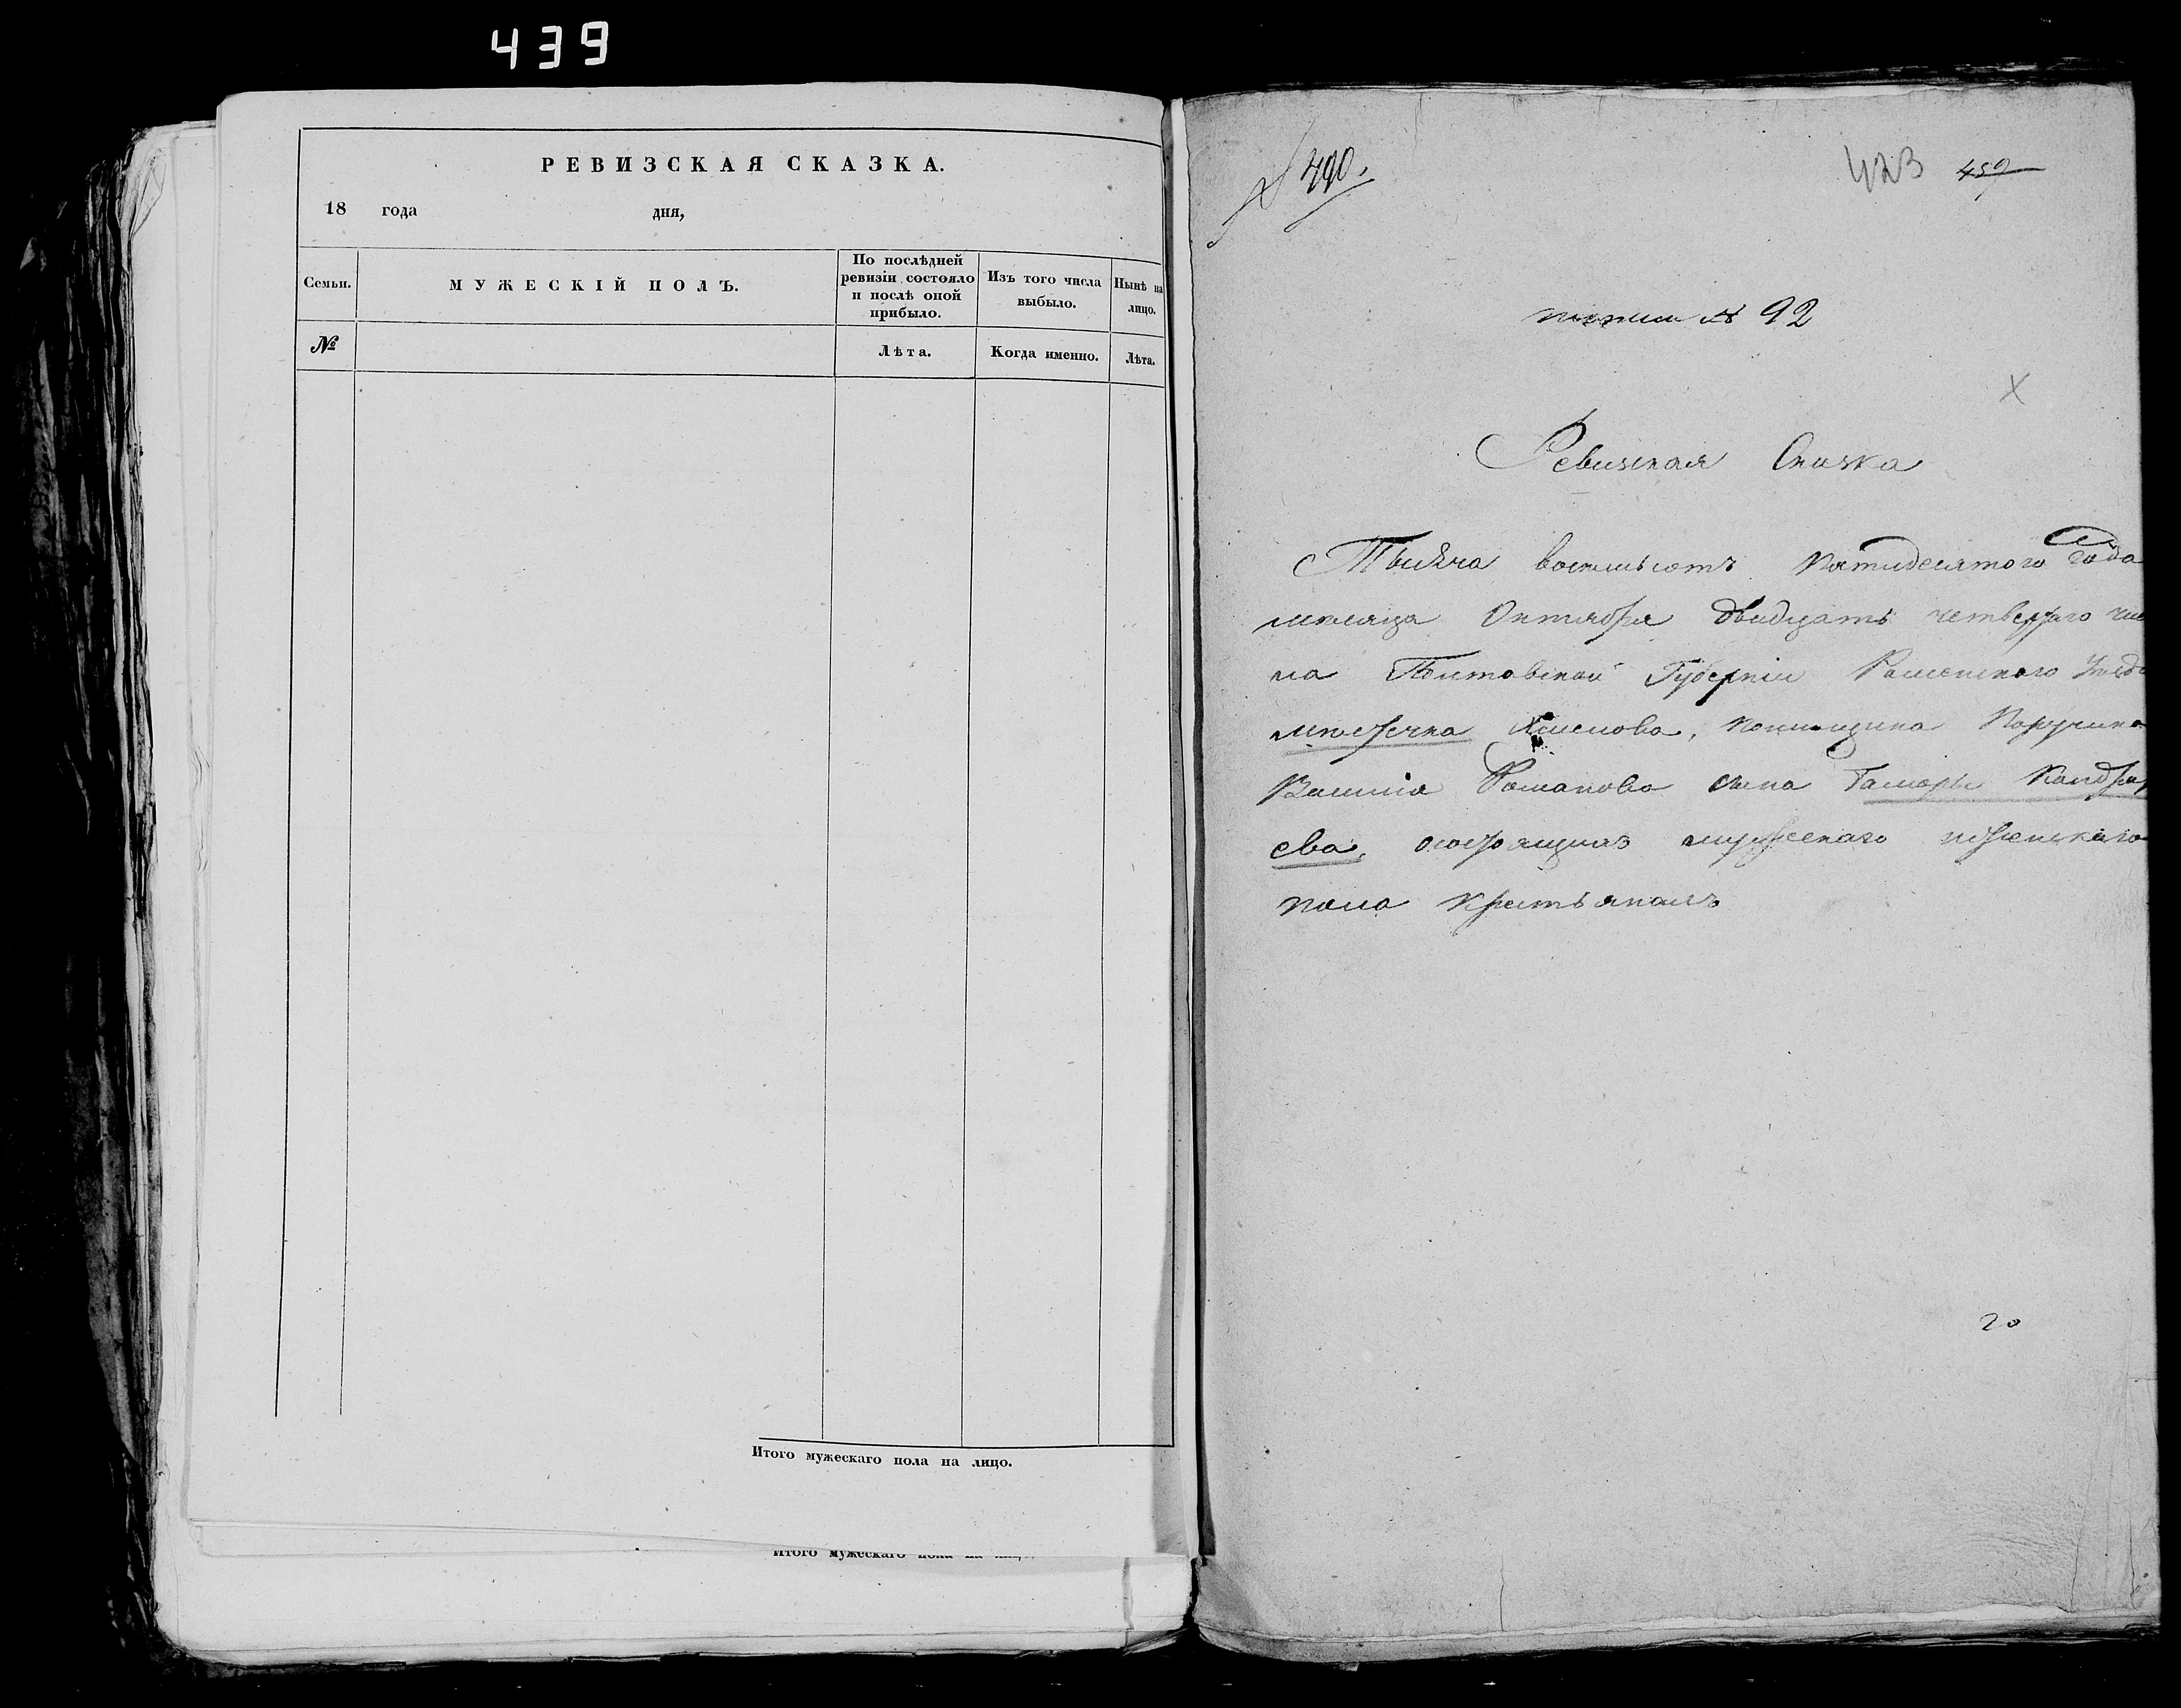 439
РЕВИЗСКАЯ СКАЗКА.
18 года дня,
Семьи. МУЖЕСКІЙ ПОЛЪ. По послѣдней ревизіи состояло и послѣ оной прибыло. Изъ того числа выбыло. Нынѣ на лицо.
№ Лѣта. Когда именно. Лѣта.
Итого мужескаго пола на лицо.
Итого мужескаго пола на лицо.
№ 490.
423 459
№ 92
Х
Ревизская Сказка
Тысяча восемьсотъ пятидесятого года
месяца Октября двадцать четвертаго чис
ла Полтавской Губерніи Роменского Уезда
местечка Хмелова, помещика Поручика
Василія Романова сына Гаморы Кандра
ева, о состоящихъ мужескаго и женскаго
пола крестьянахъ
20